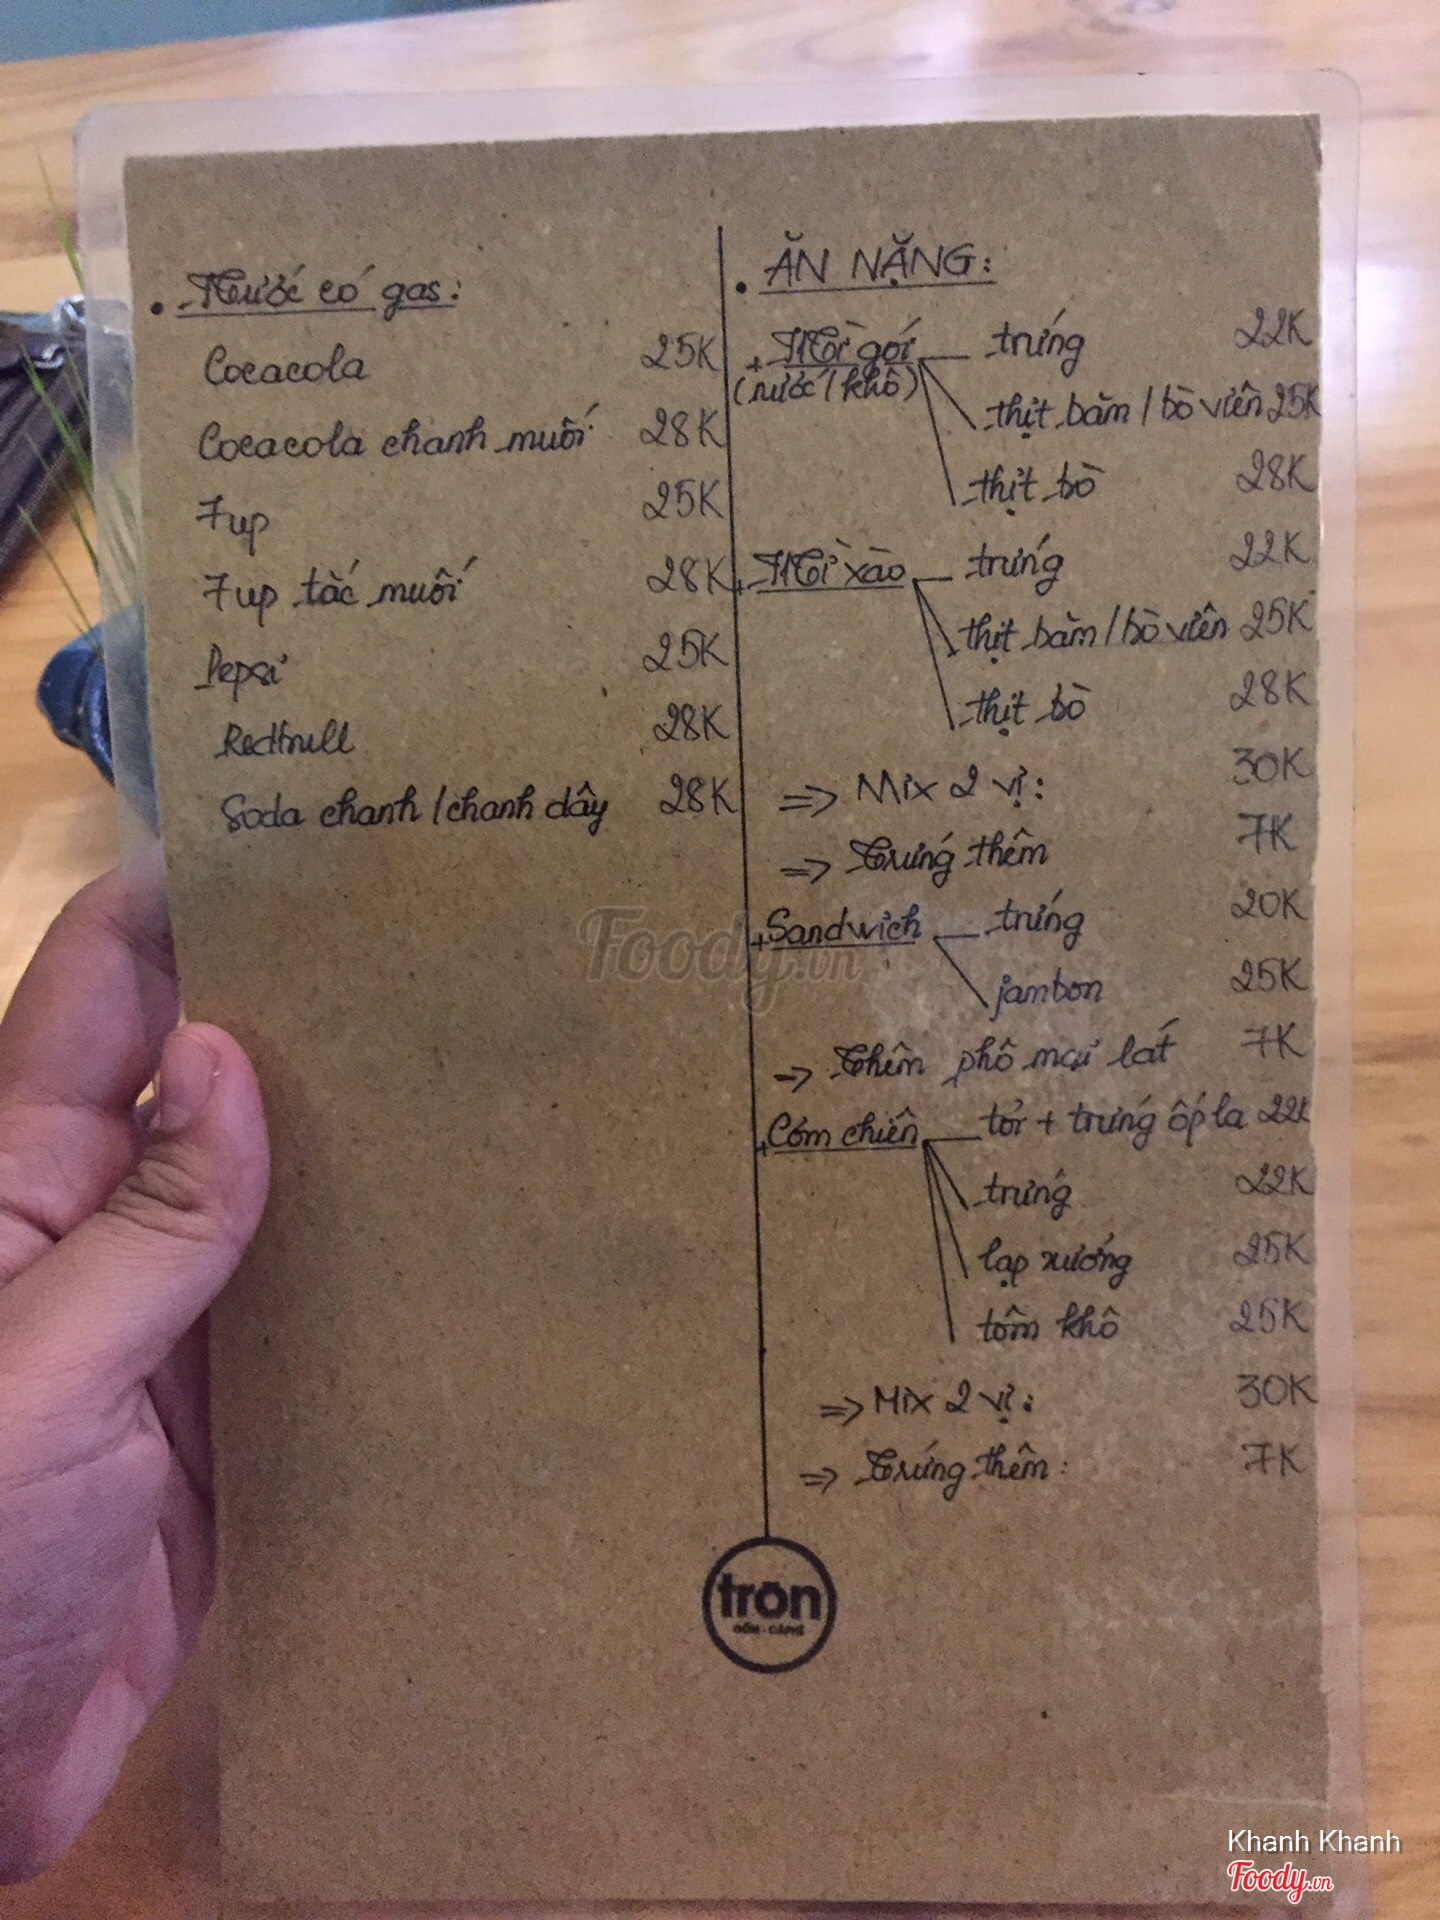 • Nước có gas:
Cocacola 25K
Cocacola chanh muối 28K
7up 25K
7up tắc muối 28K
Pepsi 25K
Redbull 28K
Soda chanh / chanh dây 28K
• ĂN NẶNG:
+ Mì gói trứng 22K
(nước / khô)
thịt bằm / bò viên 25K
thịt bò 28K
+ Mì xào trứng 22K
thịt bằm / bò viên 25K
thịt bò 28K
=> Mix 2 vị: 30K
=> Trứng thêm 7K
+ Sandwich trứng 20K
jambon 25K
=> Thêm phô mai lát 7K
+ Cơm chiên tỏi + trứng ốp la 22K
trứng 22K
lạp xưởng 25K
tôm khô 25K
=> Mix 2 vị: 30K
=> Trứng thêm: 7K
tròn
Foody.vn
Khanh Khanh
Foody.vn